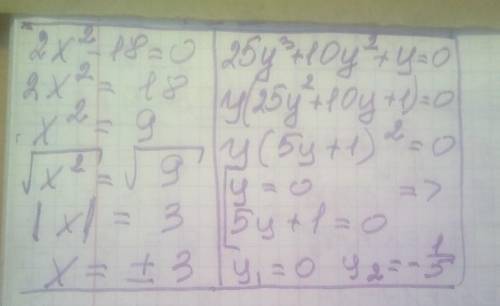 2x² - 18 = 0
2x² = 18
x² = 9
√x² = √9
|x| = 3
x = ± 3
25y³+10y²+y=0
y(25y²+10y+1)=0
y(5y+1)²=0
[y = 0 =>
5y+1=0
y₁=0 y₂=-1/5